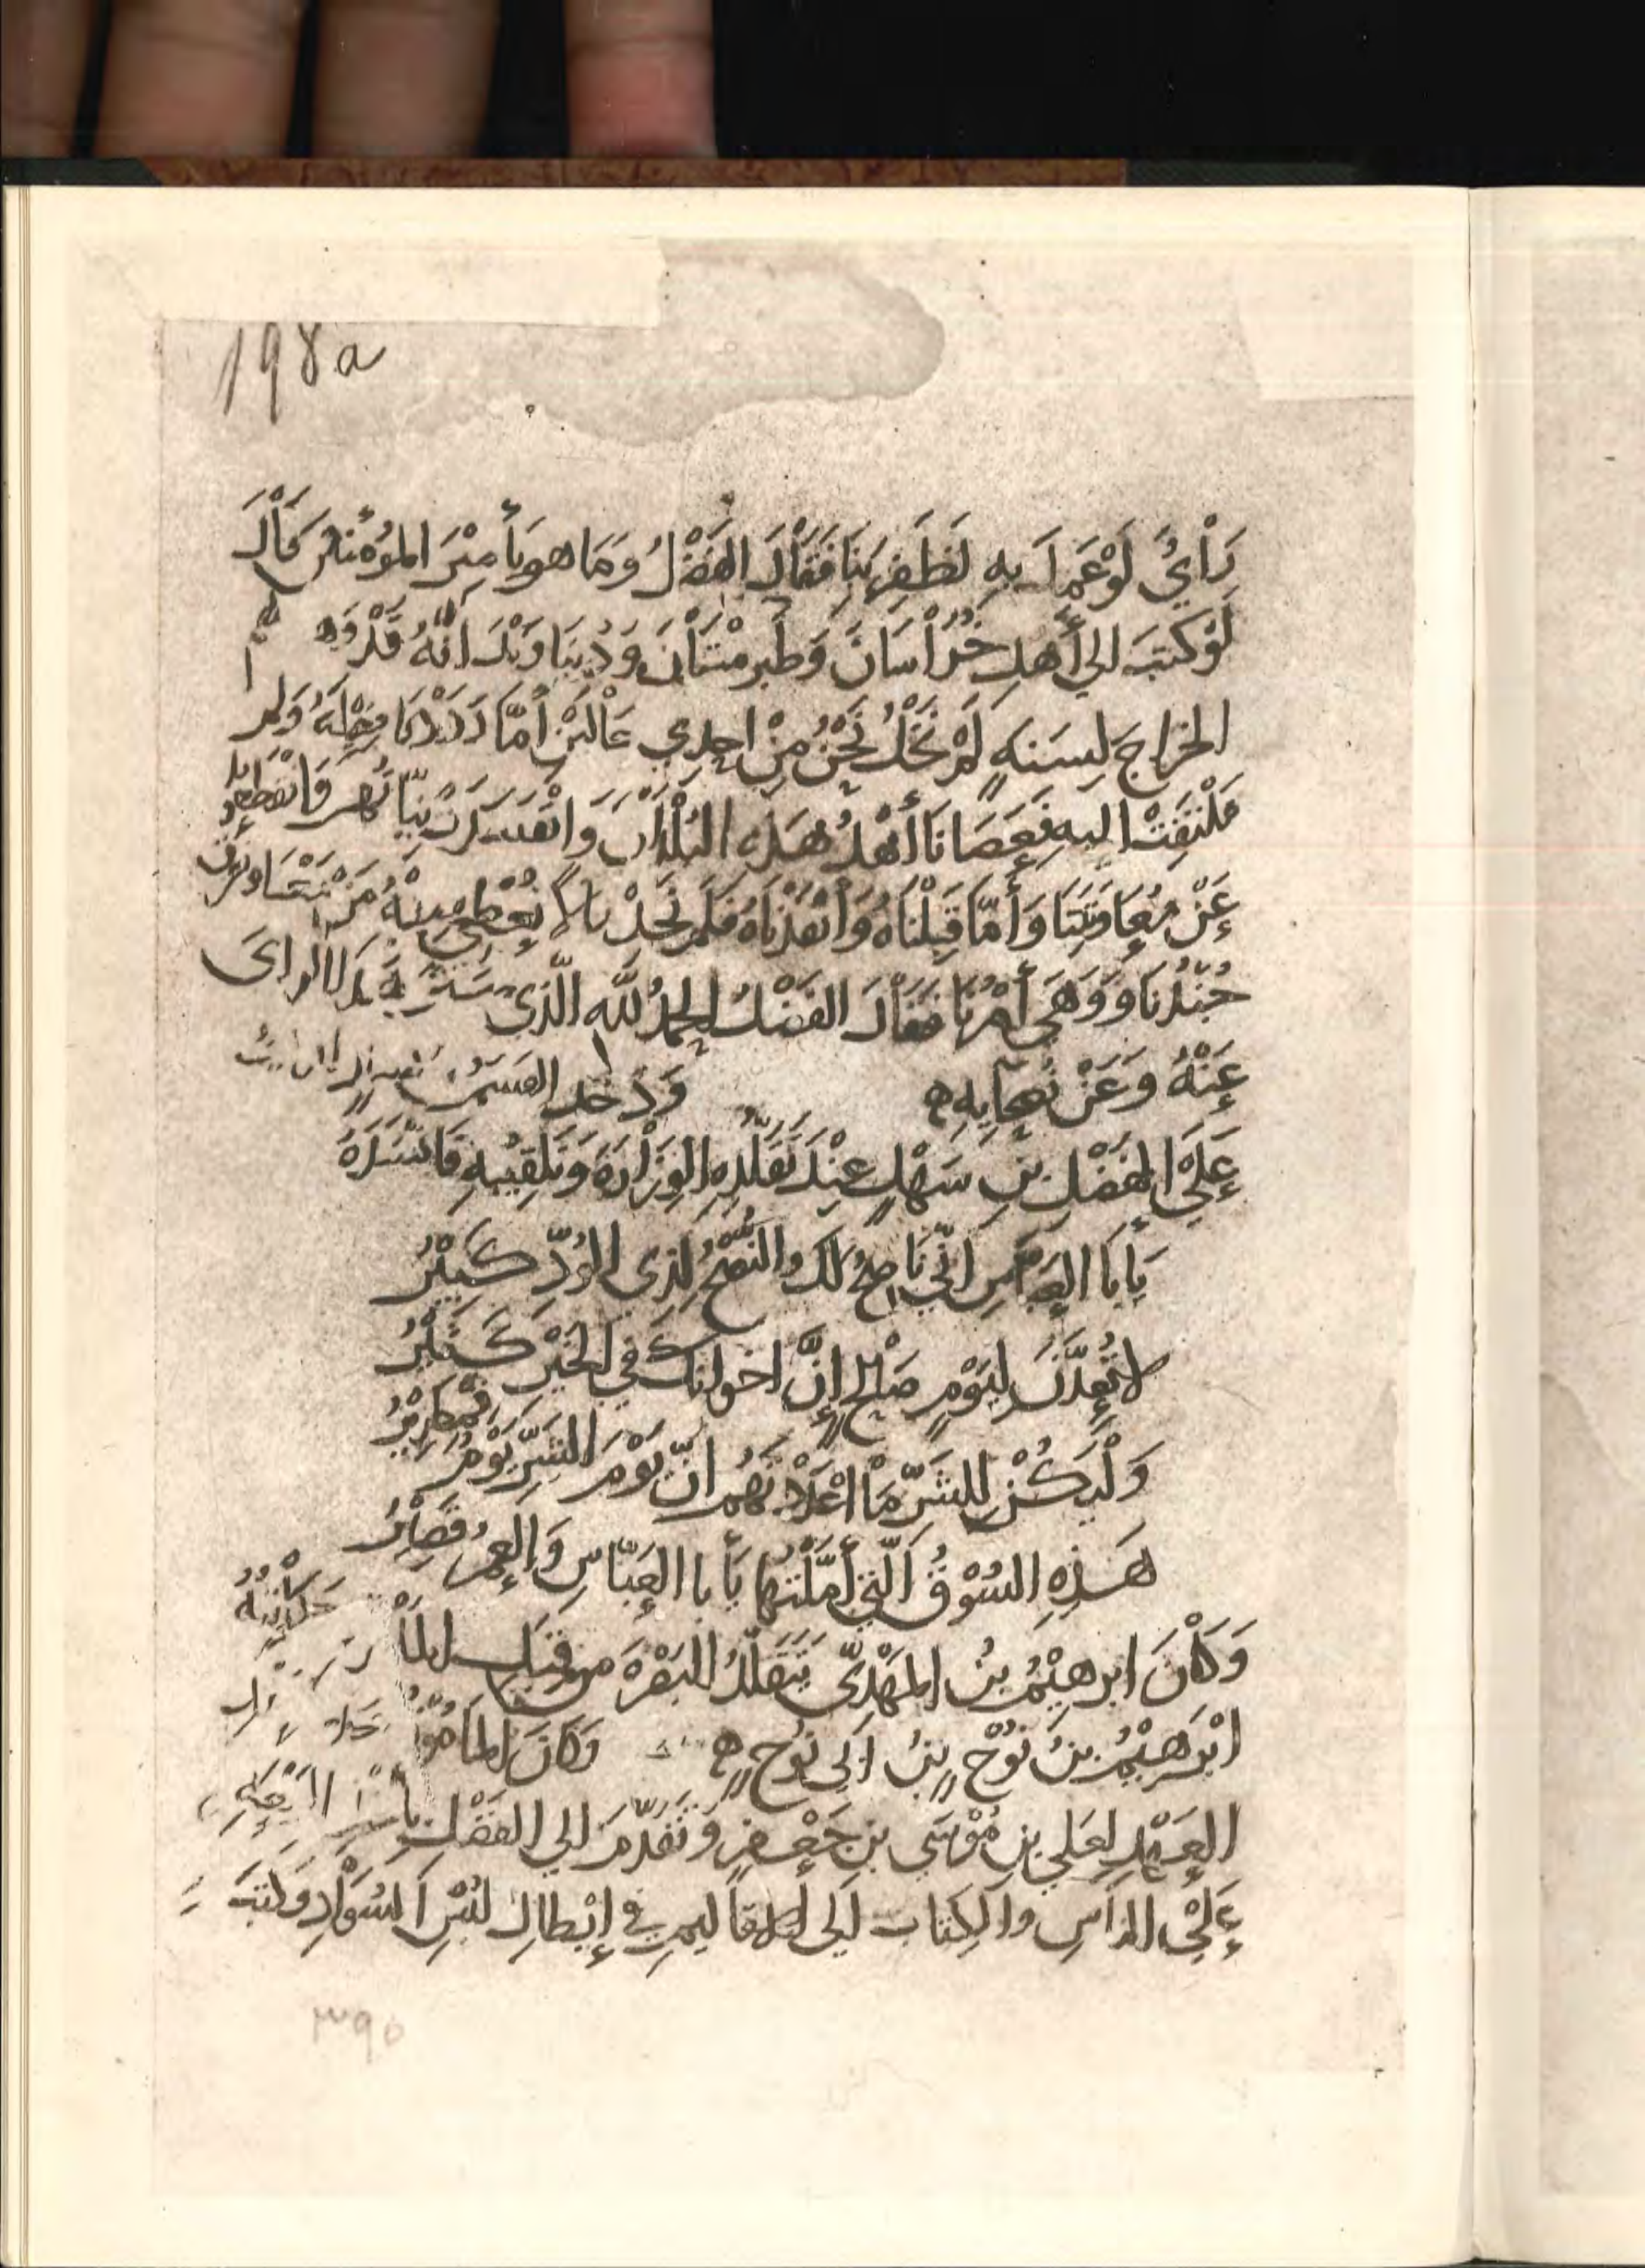 198a
رَأْيٌ لَوْ عَمِلَ بِهِ لَظَفِرَ بِنَا فَقَالَ الفَضْلُ وَمَا هو يَأ مِيْرَ المؤْمنين قَالَ
لَوْ كتبَ الي أَهلِ خُرَاْسَانَ وَطَبرِسْتَانَ وَدُنبَاوَنْدَ انَّهُ قَدْ وَهب
الخراجَ لِسَنه لَمْ نَخْلُ نَحْنُ مِنْ احدي حَالَيْنِ أَمّا رَدَدْنَا فِعْلَهُ وَلم
نَلْتَفِتْ اليهِ فَعَصَانَا أَهْلُ هَذِهِ البُلْدَانِ وَانفَسدَتْ نِيّاتُهُم فَانْقَطَعوا
عَنْ مُعَاوَنَتِنَا وَأَمّا قَبِلْنَاهُ وَأَنْفَذْنَاهُ فَلَم نَجدْ مالاً نُعْطي مِنْهُ مَنْ مَعَنَا وتفرق
جُنْدُنَا وَوَهَي أَمْرُنَا فَقَالَ الفَضْلُ الحمدُ للّه الَّذي سَتَرَ هَذَا الرايَ
عَنْهُ وَعَنْ نُصَحَايِهِ ه وَدَخَلَ
عَلَيْ الفَضْلِ بنِ سَهْلٍ عِنْدَ تَقَلُّدِهِ الوِزَاْرَةَ وَتَلْقِيْبِهِ فَانْشَدَهُ
يَأبَا العَبّاسِ انّي نَاصحٌ لَكَ والنُّصْحُ لِذي الوُدّ كَبِيْرُ
لا تُعِدَّنَّ لِيَوْمٍ صَالحٍ إِنَّ اخوانكَ في الخَيْرِ كَثِيْرُ
وَلْيَكُنْ لِلشَرِّ مَاْ اعْدَدْتَهُم انّ يَوْمَ الشَرِّ يَوْمٌ قمطريرُ
هَذِهِ السُوْقُ الَّتي أَمَّلْتُهَا يَأبا العَبّاسِ وَالعمرُ قَصِيْرُ
وَكَاْنَ ابرهيْمُ بنُ المَهْدِيّ يَتَقَلّدُ البَصْرَهَ من قِبَلِ
ابْرَهيْمُ بنُ نُوْحِ بنِ ابي نُوحٍ ه وَكَانَ المَامُوْنُ
العَهْدِ لِعَلي بنِ مُوْسَي بنِ جَعْفَرٍ وَتَقَدَّمَ الي الفَضْلِ
عَلَيْ النَاسِ وَالكِتَابِ الي الاقَاليمِ في إِبْطالِ لُبْسِ السُوَاْدِ وَكتبَ
٣٩٥